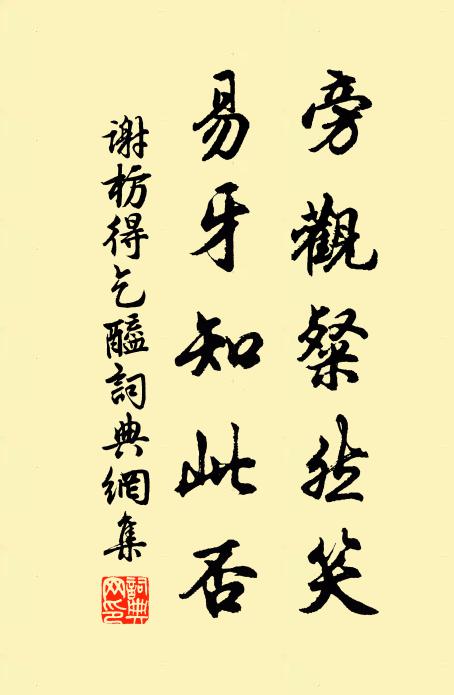 旁觀粲然笑
易牙知此否
謝枋得乞醯詞典網集
詞典
网印